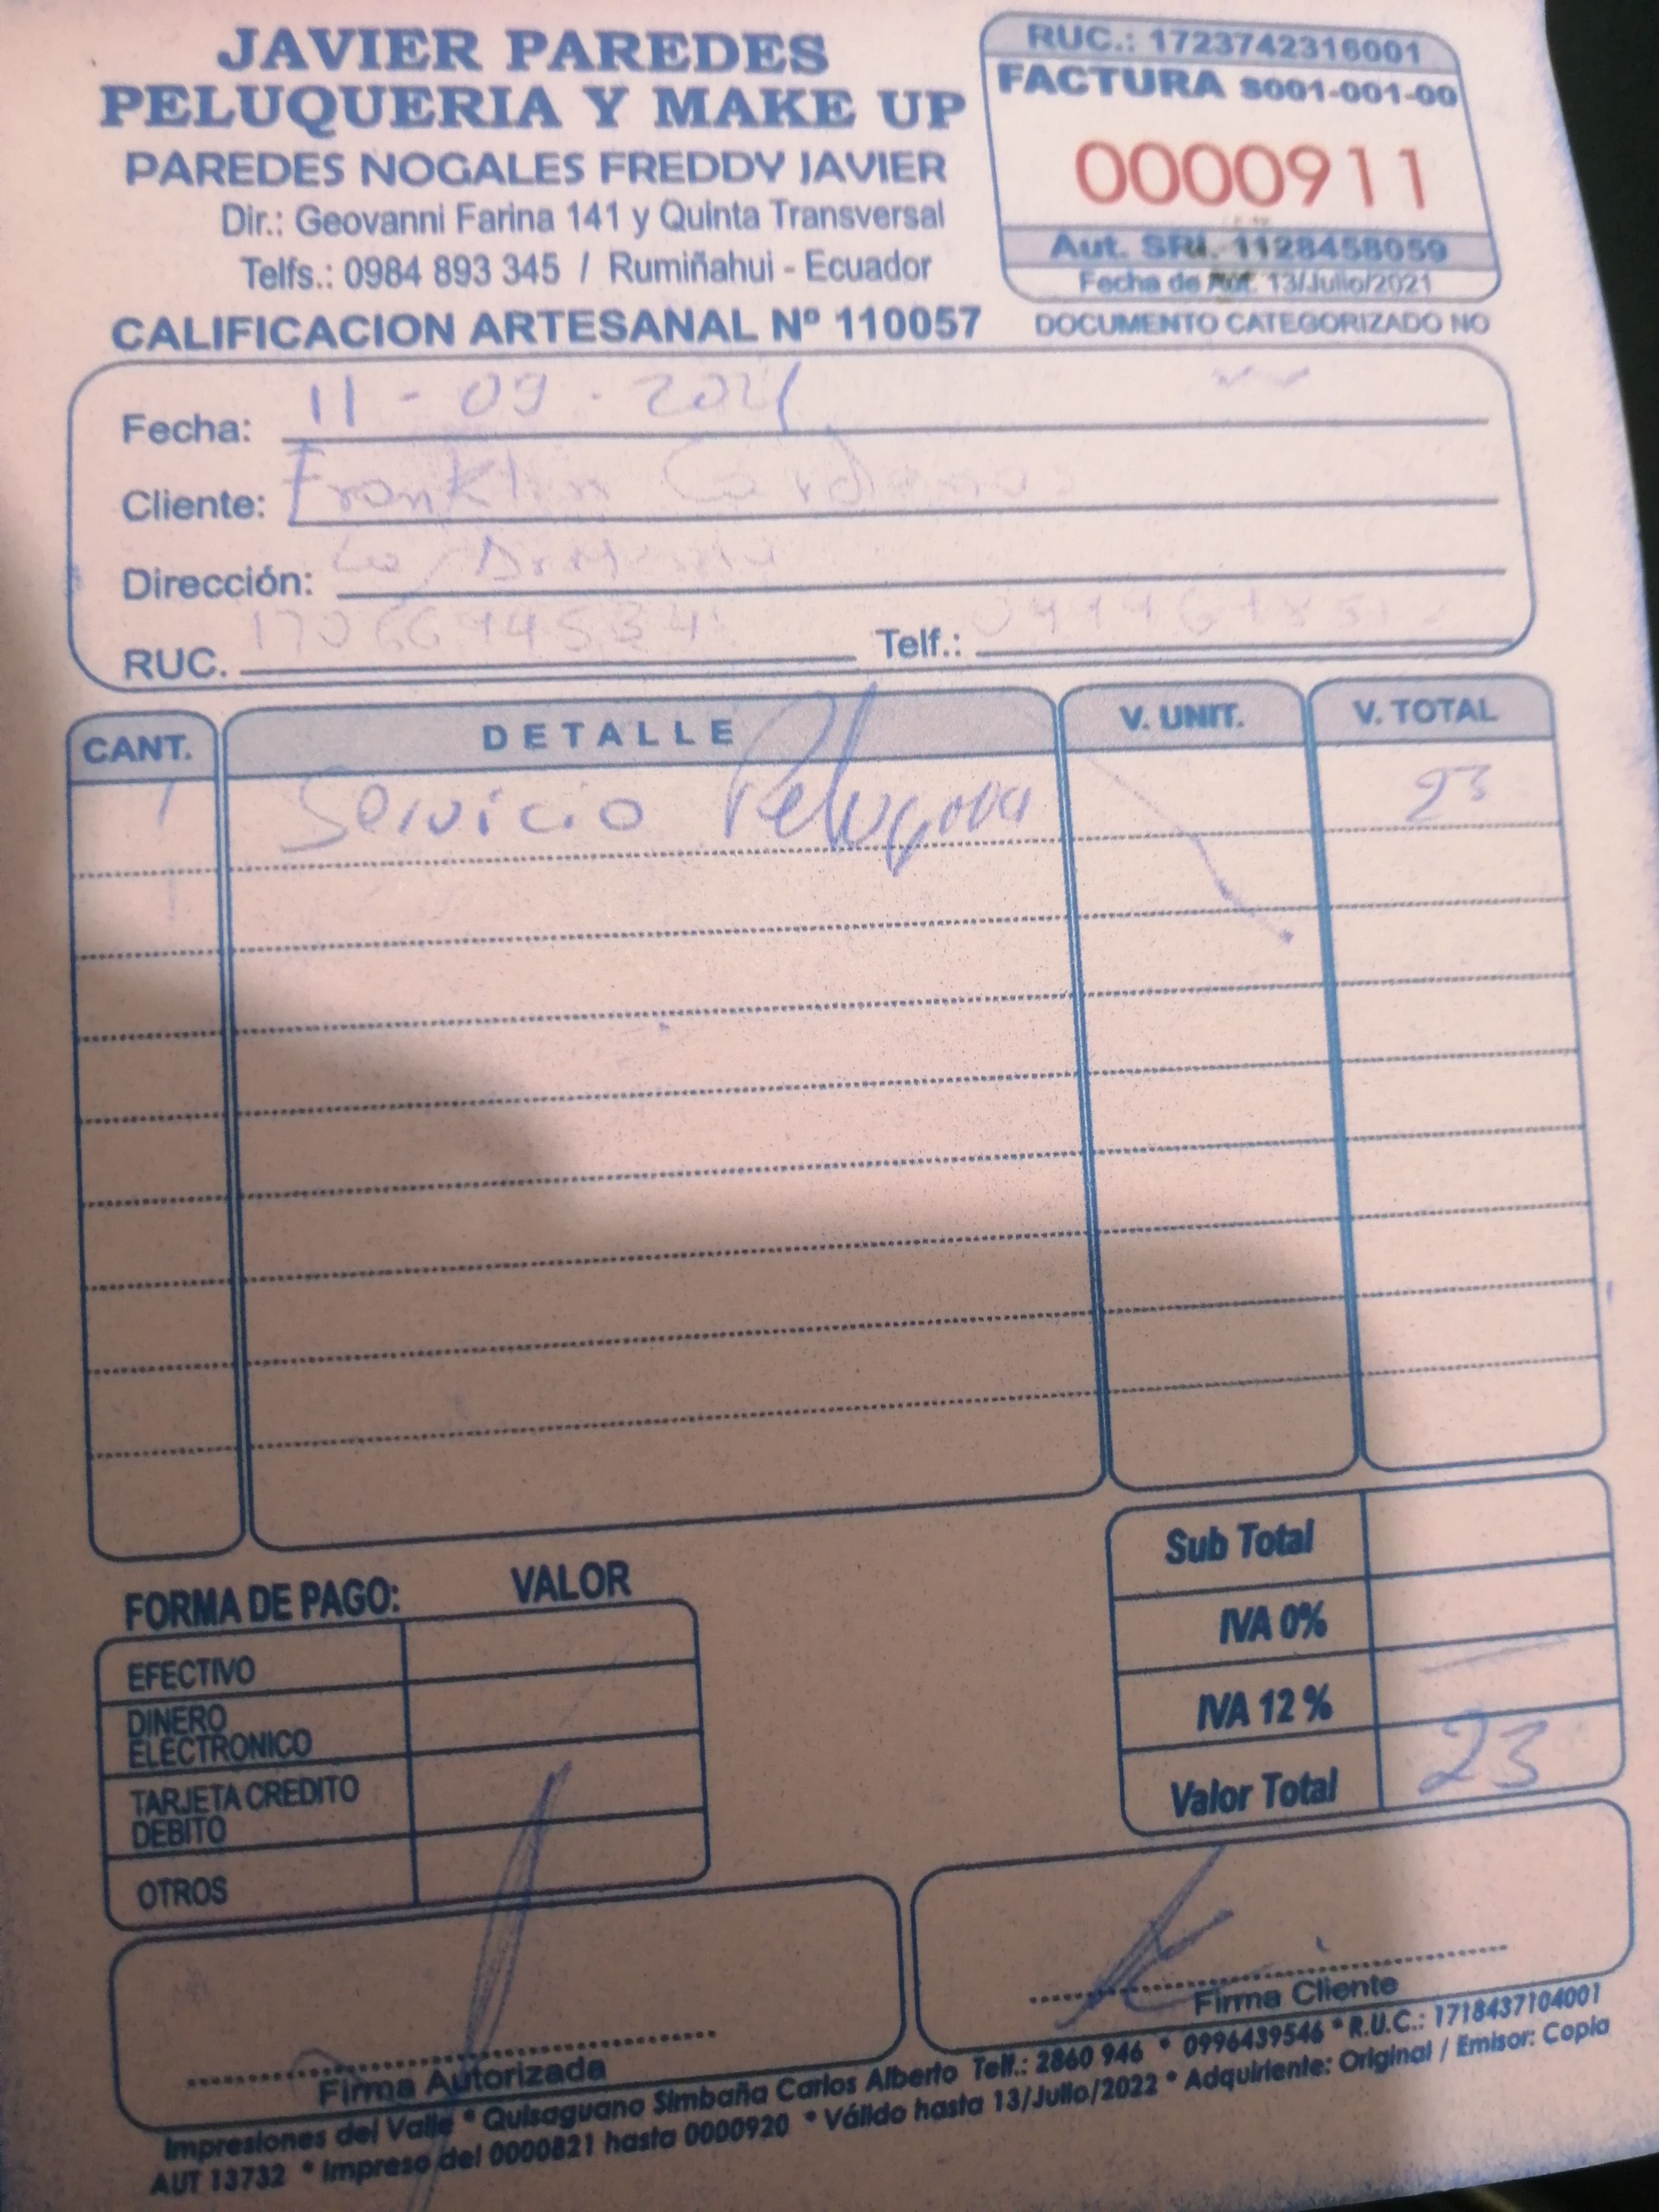 JAVIER PAREDES
PELUQUERIA Y MAKE UP
PAREDES NOGALES FREDDY JAVIER
Dir.: Geovanni Farina 141 y Quinta Transversal
Telfs.: 0984 893 345 / Rumiñahui - Ecuador
CALIFICACION ARTESANAL Nº 110057
RUC.: 1723742316001
FACTURA S001-001-00
0000911
Aut. SRI. 1128458059
Fecha de Aut. 13/Julio/2021
DOCUMENTO CATEGORIZADO NO
Fecha: 11 - 09 - 2021
Cliente: Franklin Cardenas
Dirección:
RUC. Telf.:
CANT. DETALLE V. UNIT. V. TOTAL
1 Servicio 23
Sub Total
IVA 0%
IVA 12 %
Valor Total 23
FORMA DE PAGO: VALOR
EFECTIVO
DINERO ELECTRONICO
TARJETA CREDITO DEBITO
OTROS
Firma Autorizada
Firma Cliente
Impresiones del Valle * Quisaguano Simbaña Carlos Alberto Telf.: 2860 946 * 0996439546 * R.U.C.: 1718437104001
AUT 13732 * Impreso del 0000821 hasta 0000920 * Válido hasta 13/Julio/2022 * Adquiriente: Original / Emisor: Copia